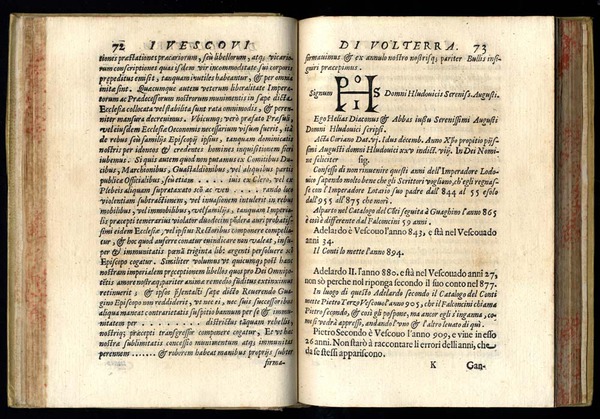 72 I VESCOVI
tiones præstationes precariorum, seù libellorum, atq; vicario-
rum conscriptiones quas isdem vir incommoditate sui corporis
prepeditus emisit, tanquam inutiles habeantur, & per omnia
imitæ sint. Quacumque autem veterum liberalitate Impera-
torum ac Prædecessorum nostrorum munimenti in sæpe dicta
Ecclesia collocata vel stabilita sunt rata omnimodis, & perem-
niter mansura decernimus. Vbicumq; verò præfato Præsuli,
vel eiusdem Ecclesiæ Oeconomis necessarium visum fuerit, ita
de rebus seù familiis Episcopii ipsius, tanquam dominicatis
nostris per idoneos & credentes homines inquisitionem fieri
iubemus. Si quis autem quod non putamus ex Comitibus Du-
cibus, Marchionibus, Guastaldionibus, vel aliquibus partis
publicæ Officialibus, seù etiam . . . . . ius ex Clero, vel ex
Plebeiis aliquam suprataxato
violentiam subtractionem, vel inuasionem intulerit in rebus
mobilibus, vel immobilibus, vel familiis, tanquam Imperia-
lis præcepti temerarius violator duodecim pondera auri probatis-
simi eidem Ecclesiæ, vel ipsius Rectoribus componere compella-
tur, & hoc quod auferre conatur euindicare non valeat, insu-
per & immunitatis pænà triginta libr. argenti persoluere sæ
Episcopo cogatur. Similiter volumus vt quicumq; post hanc
nostram imperialem præceptionem libellos quos pro Dei Omnipo-
tentis amore nostraq; pariter animæ remedio funditus extinximus
retinuerit, & ipsos insentialis sæpe dicto Reuerendo Guagino
Episcopo non reddiderit, vt nec ei, nec suis successoribus
aliqua maneat contrarietatis suspitio bannum per se & immu-
nitatem per . . . . . . . . districtus tanquam rebellis,
nostriq; præcepti transgressor componere cogatur. Et vt hæc
nostra sublimitatis concessio munimentum atq; immunitas
perennem . . . . . . & roborem habeat manibus propriis subter
firma-
DI VOLTERRA. 73
firmauimus & ex annulo nostro nostrisq; pariter Bullis insi-
guiri præcepimus.
Signum P H O I S Domni Hludouicis Sereniss. Augusti.
Ego Helias Diaconus & Abbas iussu Serenissimi Augusti
Domni Hludouici scripsi.
Acta Coriano Dat. vj. Idus decemb. Anno Xp̃o propitio pijs-
simi Augusti domni Hludouici xxv indict. viij. In Dei Nome
feliciter sig.
Confesso di non rinuenire questi anni dell'Imperadore Lodo-
uico sapendo molto bene che gli Scrittori vogliano, ch'egli regnas-
se con l'Imperadore Lotario suo padre dall'844 al 55 e solo
dall'955 all'875 che morì.
All'arto nel Catalogo del Clei seguita à Guaghino l'anno 865
è cui è differente dal Falconcini 59 anni.
Adelardo è Vescouo l'anno 843, e stà nel Vescouado
anni 34.
Il Conti lo mette l'anno 894.
Adelardo II. l'anno 880. e stà nel Vescouado anni 27,
non sò perche nol riponga secondo il suo conto nel 877.
In luogo di questo Adelardo secondo il Catalogo del Conti
mette Pietro Terzo Vescouo l'anno 905, che il Falconcini chiama
Pietro secondo, & così gli pospone, ma ancor egli s'inganna, co-
mu si vedrà appresso, andando l'vno & l'altro lenato di quà.
Pietro Secondo è Vescouo l'anno 909, e viue in esso
26 anni. Non starò à raccontare li errori delli anni, che
da se stessi appariscono.
K Gan-